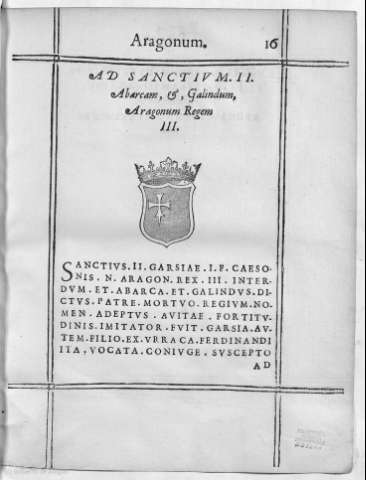 Aragonum. 16
AD SANCTIVM. II.
Abarcam, &, Galindum,
Aragonum Regem
III.
SANCTIVS. II. GARSIAE. I. F. CAESO-
NIS. N. ARAGON. REX. III. INTER-
DVM. ET. ABARCA. ET. GALINDVS. DI-
CTVS. PATRE. MORTVO. REGIVM. NO-
MEN. ADEPTVS. AVITAE. FORTITV-
DINIS. IMITATOR. FVIT. GARSIA. AV-
TEM. FILIO. EX. VRRACA. FERDINANDI
IIA. VOCATA. CONIVGE. SVSCEPTO
AD